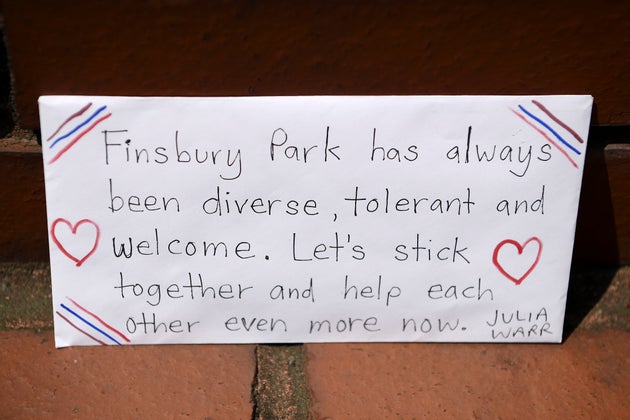 Finsbury Park has always
been diverse, tolerant and
welcome. Let's stick
together and help each
other even more now.
JULIA
WARR